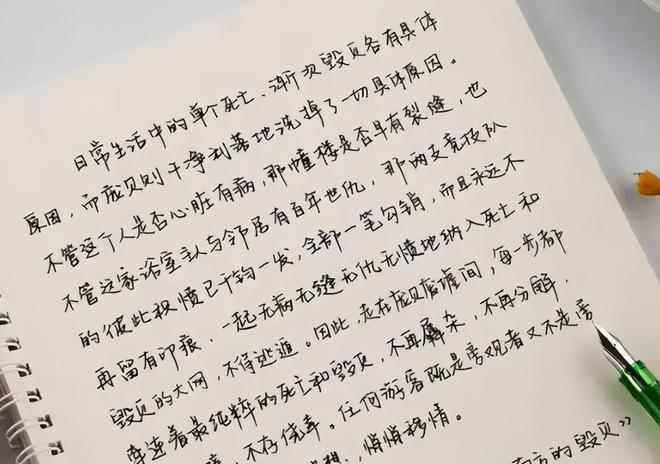 日常生活中的单个死亡、渐次毁灭各有具体
原因，而庞贝则干净利落地洗掉了一切具体原因。
不管这个人是否心脏有病，那幢楼是否早有裂缝，也
不管这家浴室主人与邻居有百年世仇，那两支竞技队
的彼此积愤已千钧一发，全部一笔勾销，而且永远不
再留有印痕，一起无病无缝无仇无愤地纳入死亡和
毁灭的大网，不得逃遁。因此，走在庞贝废墟间，每一步都
牵连着最纯粹的死亡和毁灭，不再羼杂，不再分解，
不存侥幸。任何游客既是旁观者又不是旁
想，悄悄移情。
方的毁灭》